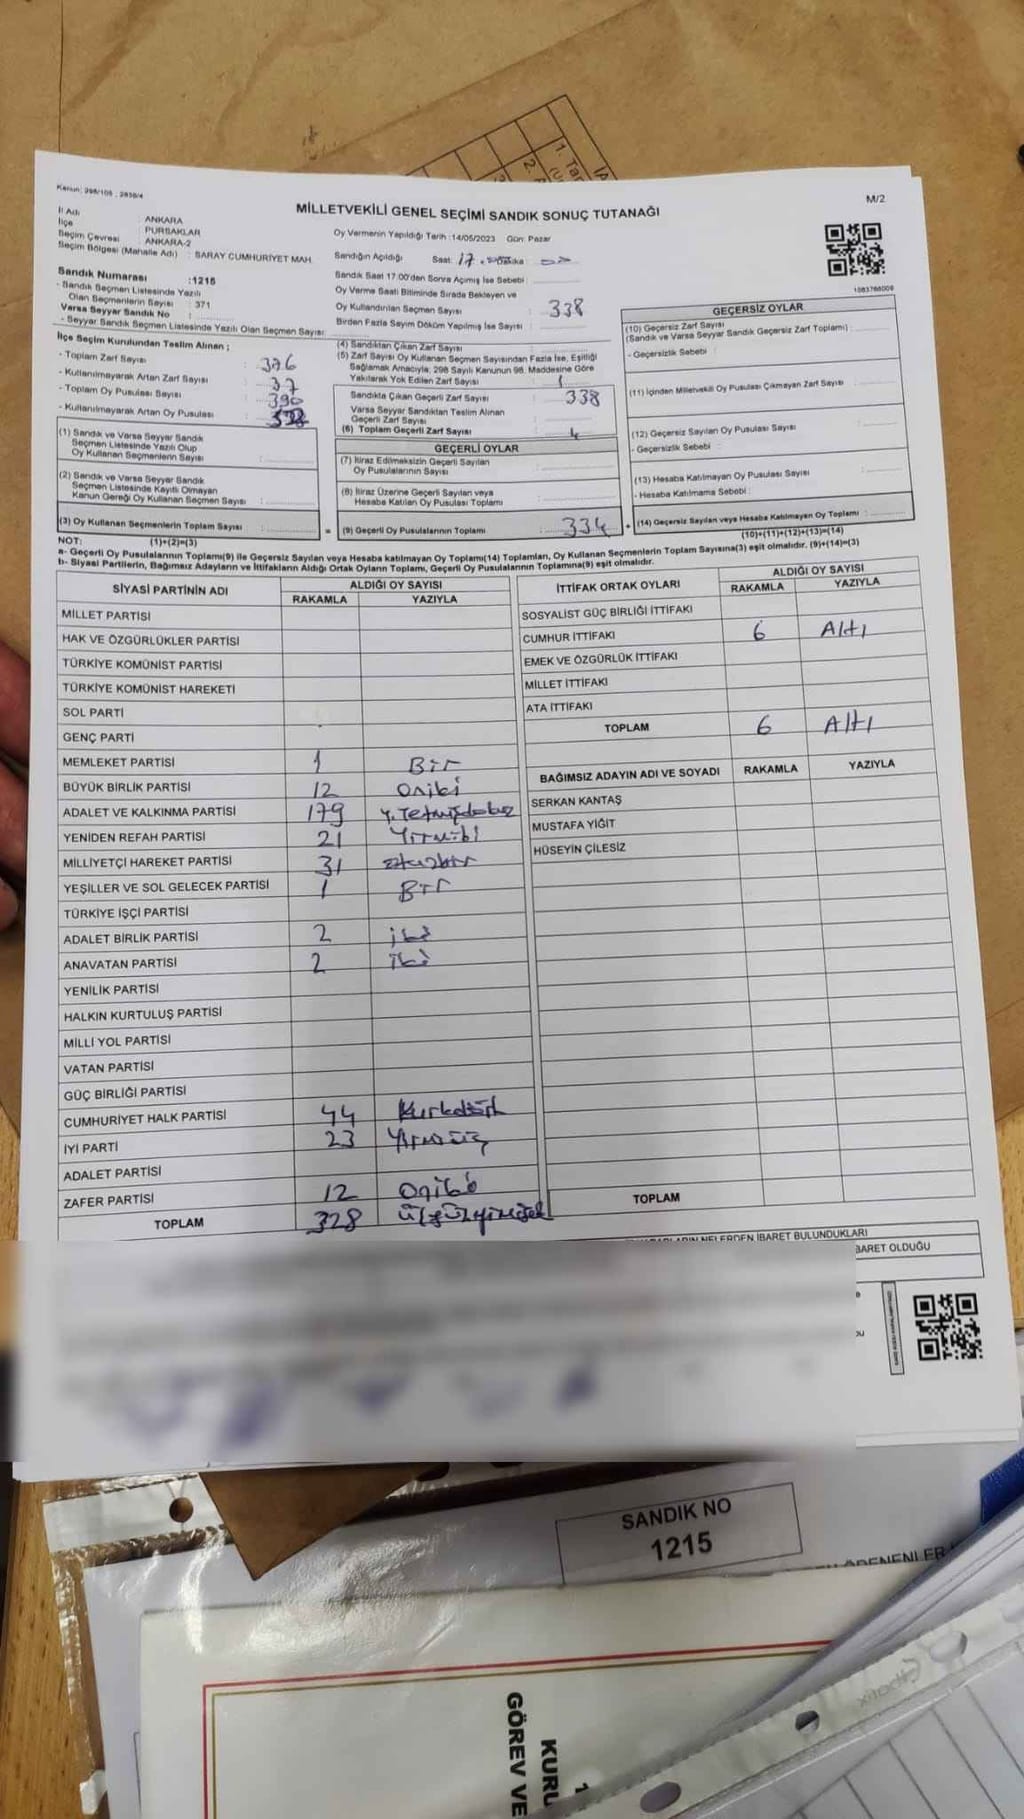 Kanun: 298/105 , 2839/4
M/2
MİLLETVEKİLİ GENEL SEÇİMİ SANDIK SONUÇ TUTANAĞI
İl Adı : ANKARA
İlçe : PURSAKLAR
Seçim Çevresi : ANKARA-2
Seçim Bölgesi (Mahalle Adı) : SARAY CUMHURİYET MAH.
Oy Vermenin Yapıldığı Tarih :14/05/2023 Gün: Pazar
Sandığın Açıldığı Saat: 17 Dakika : 00
Sandık Saat 17:00'den Sonra Açılmış İse Sebebi :
Oy Verme Saati Bitiminde Sırada Bekleyen ve
Oy Kullandırılan Seçmen Sayısı : 338
Birden Fazla Sayım Döküm Yapılmış İse Sayısı :
Sandık Numarası :1215
- Sandık Seçmen Listesinde Yazılı
Olan Seçmenlerin Sayısı : 371
Varsa Seyyar Sandık No :
- Seyyar Sandık Seçmen Listesinde Yazılı Olan Seçmen Sayısı:
İlçe Seçim Kurulundan Teslim Alınan ;
- Toplam Zarf Sayısı : 376
- Kullanılmayarak Artan Zarf Sayısı : 37
- Toplam Oy Pusulası Sayısı : 390
- Kullanılmayarak Artan Oy Pusulası :
(1) Sandık ve Varsa Seyyar Sandık
Seçmen Listesinde Yazılı Olup
Oy Kullanan Seçmenlerin Sayısı :
(2) Sandık ve Varsa Seyyar Sandık
Seçmen Listesinde Kayıtlı Olmayan
Kanun Gereği Oy Kullanan Seçmen Sayısı :
(3) Oy Kullanan Seçmenlerin Toplam Sayısı :
(4) Sandıktan Çıkan Zarf Sayısı
(5) Zarf Sayısı Oy Kullanan Seçmen Sayısından Fazla İse, Eşitliği
Sağlamak Amacıyla; 298 Sayılı Kanunun 98. Maddesine Göre
Yakılarak Yok Edilen Zarf Sayısı : 1
Sandıkta Çıkan Geçerli Zarf Sayısı : 338
Varsa Seyyar Sandıktan Teslim Alınan
Geçerli Zarf Sayısı
(6) Toplam Geçerli Zarf Sayısı : 4
GEÇERLİ OYLAR
(7) İtiraz Edilmeksizin Geçerli Sayılan
Oy Pusulalarının Sayısı :
(8) İtiraz Üzerine Geçerli Sayılan veya
Hesaba Katılan Oy Pusulası Toplamı :
= (9) Geçerli Oy Pusulalarının Toplamı : 334 +
1083768009
GEÇERSİZ OYLAR
(10) Geçersiz Zarf Sayısı
(Sandık ve Varsa Seyyar Sandık Geçersiz Zarf Toplamı) :
- Geçersizlik Sebebi :
(11) İçinden Milletvekili Oy Pusulası Çıkmayan Zarf Sayısı :
(12) Geçersiz Sayılan Oy Pusulası Sayısı :
- Geçersizlik Sebebi :
(13) Hesaba Katılmayan Oy Pusulası Sayısı :
- Hesaba Katılmama Sebebi :
(14) Geçersiz Sayılan veya Hesaba Katılmayan Oy Toplamı :
(10)+(11)+(12)+(13)=(14)
NOT: (1)+(2)=(3)
a- Geçerli Oy Pusulalarının Toplamı(9) ile Geçersiz Sayılan veya Hesaba katılmayan Oy Toplamı(14) Toplamları, Oy Kullanan Seçmenlerin Toplam Sayısına(3) eşit olmalıdır. (9)+(14)=(3)
b- Siyasi Partilerin, Bağımsız Adayların ve İttifakların Aldığı Ortak Oyların Toplamı, Geçerli Oy Pusulalarının Toplamına(9) eşit olmalıdır.
SİYASİ PARTİNİN ADI ALDIĞI OY SAYISI
RAKAMLA YAZIYLA
MİLLET PARTİSİ
HAK VE ÖZGÜRLÜKLER PARTİSİ
TÜRKİYE KOMÜNİST PARTİSİ
TÜRKİYE KOMÜNİST HAREKETİ
SOL PARTİ
GENÇ PARTİ
MEMLEKET PARTİSİ 1 Bir
BÜYÜK BİRLİK PARTİSİ 12 Oniki
ADALET VE KALKINMA PARTİSİ 179 Y.Yetmişdokuz
YENİDEN REFAH PARTİSİ 21
MİLLİYETÇİ HAREKET PARTİSİ 31 otuzbir
YEŞİLLER VE SOL GELECEK PARTİSİ 1 Bir
TÜRKİYE İŞÇİ PARTİSİ
ADALET BİRLİK PARTİSİ 2 iki
ANAVATAN PARTİSİ 2 iki
YENİLİK PARTİSİ
HALKIN KURTULUŞ PARTİSİ
MİLLİ YOL PARTİSİ
VATAN PARTİSİ
GÜÇ BİRLİĞİ PARTİSİ
CUMHURİYET HALK PARTİSİ 44 Kırkdört
İYİ PARTİ 23 Yirmiüç
ADALET PARTİSİ
ZAFER PARTİSİ 12 Oniki
TOPLAM 328
İTTİFAK ORTAK OYLARI ALDIĞI OY SAYISI
RAKAMLA YAZIYLA
SOSYALİST GÜÇ BİRLİĞİ İTTİFAKI
CUMHUR İTTİFAKI 6 Altı
EMEK VE ÖZGÜRLÜK İTTİFAKI
MİLLET İTTİFAKI
ATA İTTİFAKI
TOPLAM 6 Altı
BAĞIMSIZ ADAYIN ADI VE SOYADI RAKAMLA YAZIYLA
SERKAN KANTAŞ
MUSTAFA YİĞİT
HÜSEYİN ÇİLESİZ
TOPLAM
NELERDEN İBARET BULUNDUKLARI
BARET OLDUĞU
SANDIK NO
1215
KURU
GÖREV VE